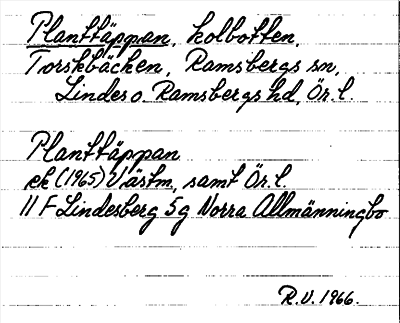 Planttäppan, kolbotten,
Torskbäcken, Ramsbergs sn,
Lindes o. Ramsbergs hd, Ör. l.
Planttäppan
ek (1965) Västm, samt Ör. l.
11 F Lindesberg 5g Norra Allmänningbo
R.V. 1966.